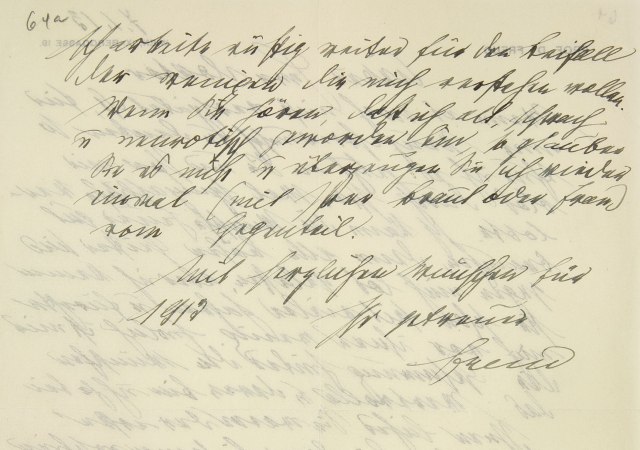 64a
Ich arbeite rüstig weiter für den Beifall
der wenigen die mich verstehen wollen.
Wenn Sie hören, daß ich alt, schwach
u neurotisch geworden bin, so glauben
Sie es nicht u überzeugen Sie sich wieder
einmal (mit Ihrer Braut oder Frau)
vom Gegenteil.
Mit herzlichen Wünschen für
1913 Ihr getreuer
Freud